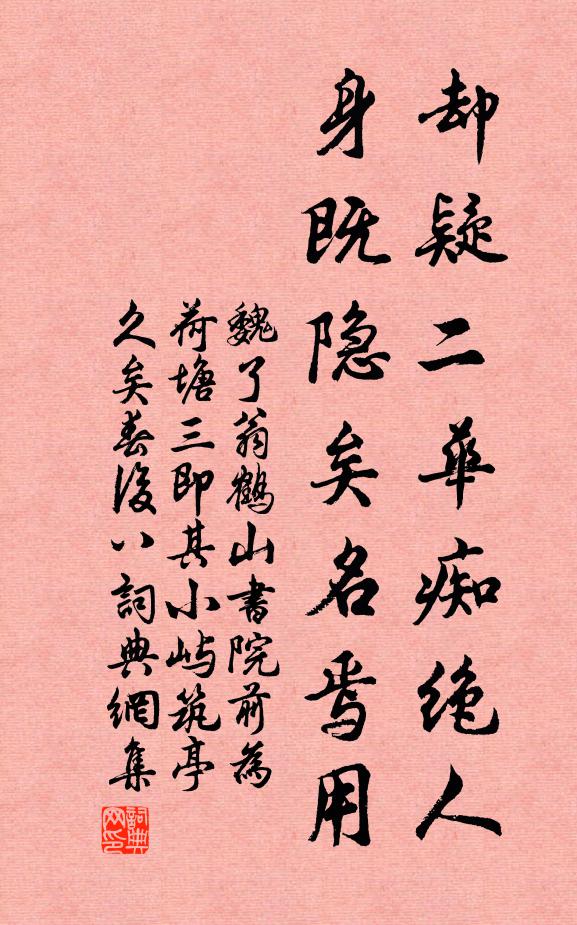 却疑二華痴绝人
身既隐矣名焉用
魏了翁鹤山書院前為
荷塘三即其小屿筑亭
久矣春後八詞典網集
詞典网印